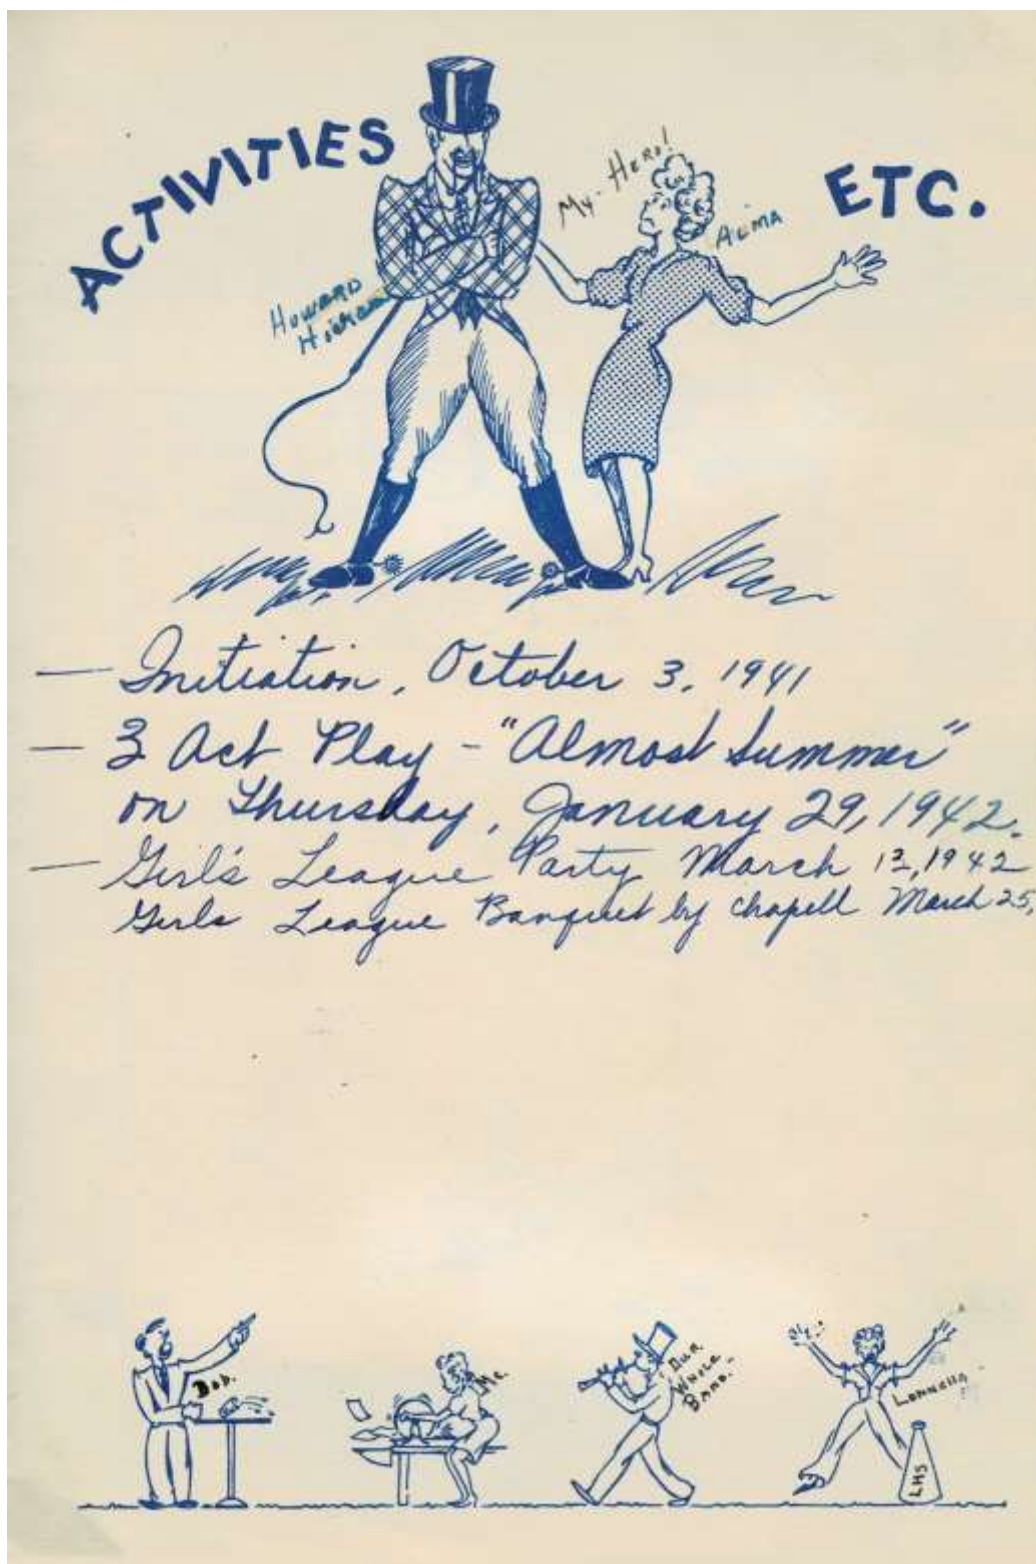 ACTIVITIES
ETC.
My - Hero!
Alma
Howard
— Initiation, October 3, 1941
— 3 Act Play - "Almost Summer"
on Thursday, January 29, 1942.
— Girl's League Party March 13, 1942
Girls League Banquet by Chapell March 25,
Bob.
Me.
Our
Whole
Band.
LHS